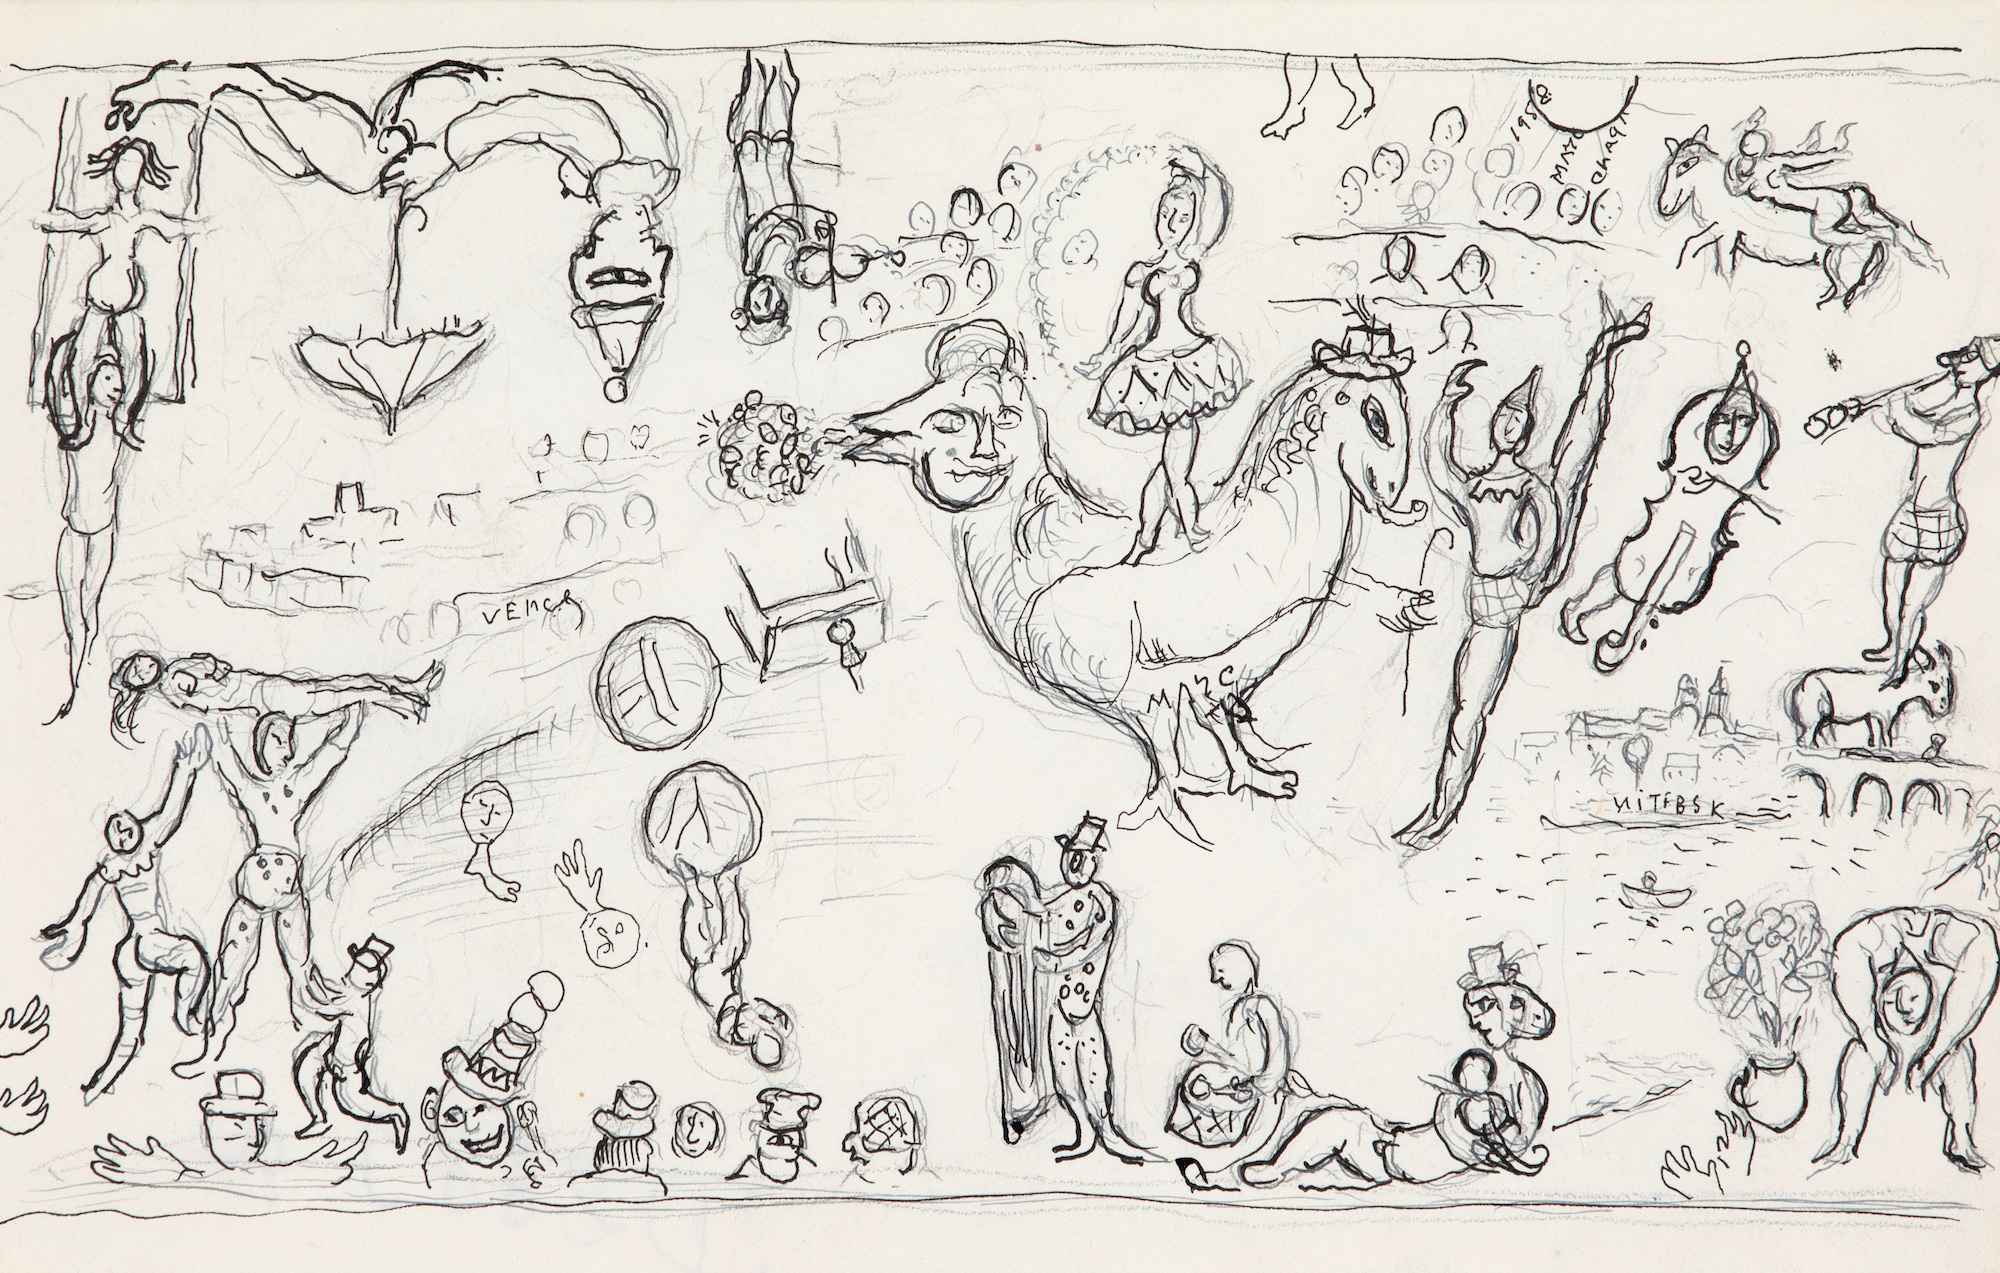 195
MArc
chagall
VENCE
MArC
VITEBSK